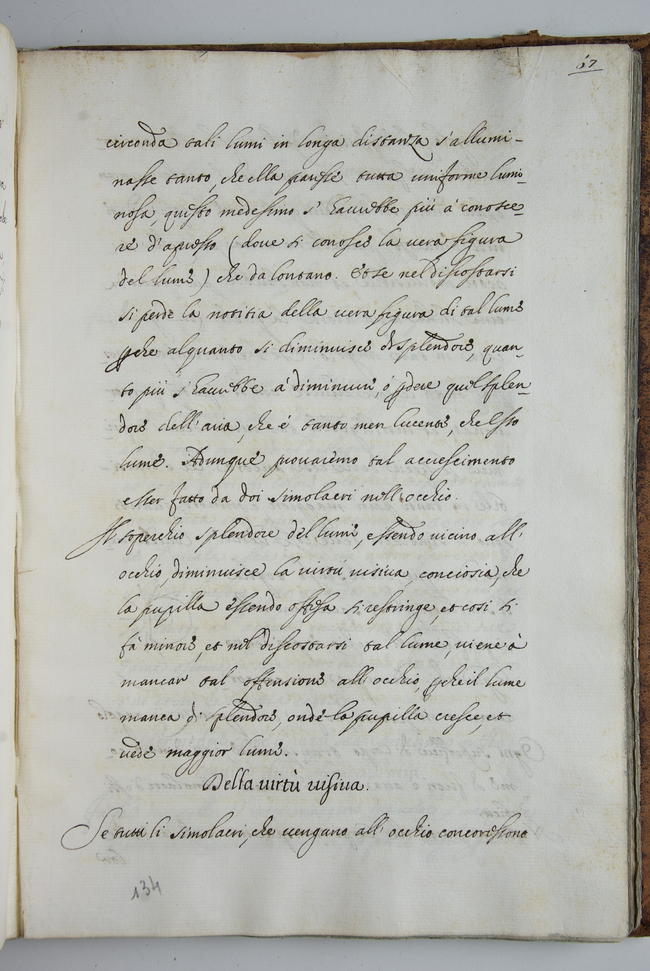 67
circonda tali lumi in longa distanza s'allumi-
nasse tanto, che ella paresse tutta uniforme lumi-
nosa, questo medesimo s'haurebbe più à conosce-
re d'apresso (dove si conosce la vera figura
del lume) che da lontano. Et se nel discostarsi
si perde la notitia della vera figura di tal lume
pche alquanto si diminuisce di splendore, quan-
to più s'haurebbe à diminuire, ò pdere quel splen-
dore dell'aria, che è tanto men lucente, che esso
lume. Adunque provaremo tal accrescimento
esser fatto da doi simolacri nell'occhio.
Il soperchio splendore del lume, essendo vicino all'
occhio, diminuisce la virtù visiva, conciosia, che
la pupilla essendo offesa si restringe, et così si
fà minore, et nel discostarsi tal lume, viene à
mancar tal offensione all'occhio, pche il lume
manca di splendore, onde la pupilla cresce, et
vede maggior lume.
Della virtù visiva.
Se tutti li simolacri, che vengano all'occhio concoressono
134